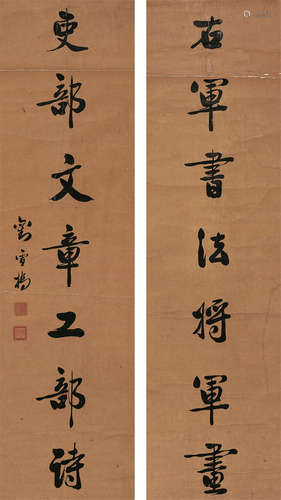 右軍書法將軍畫
吏部文章工部詩
劉雪楊